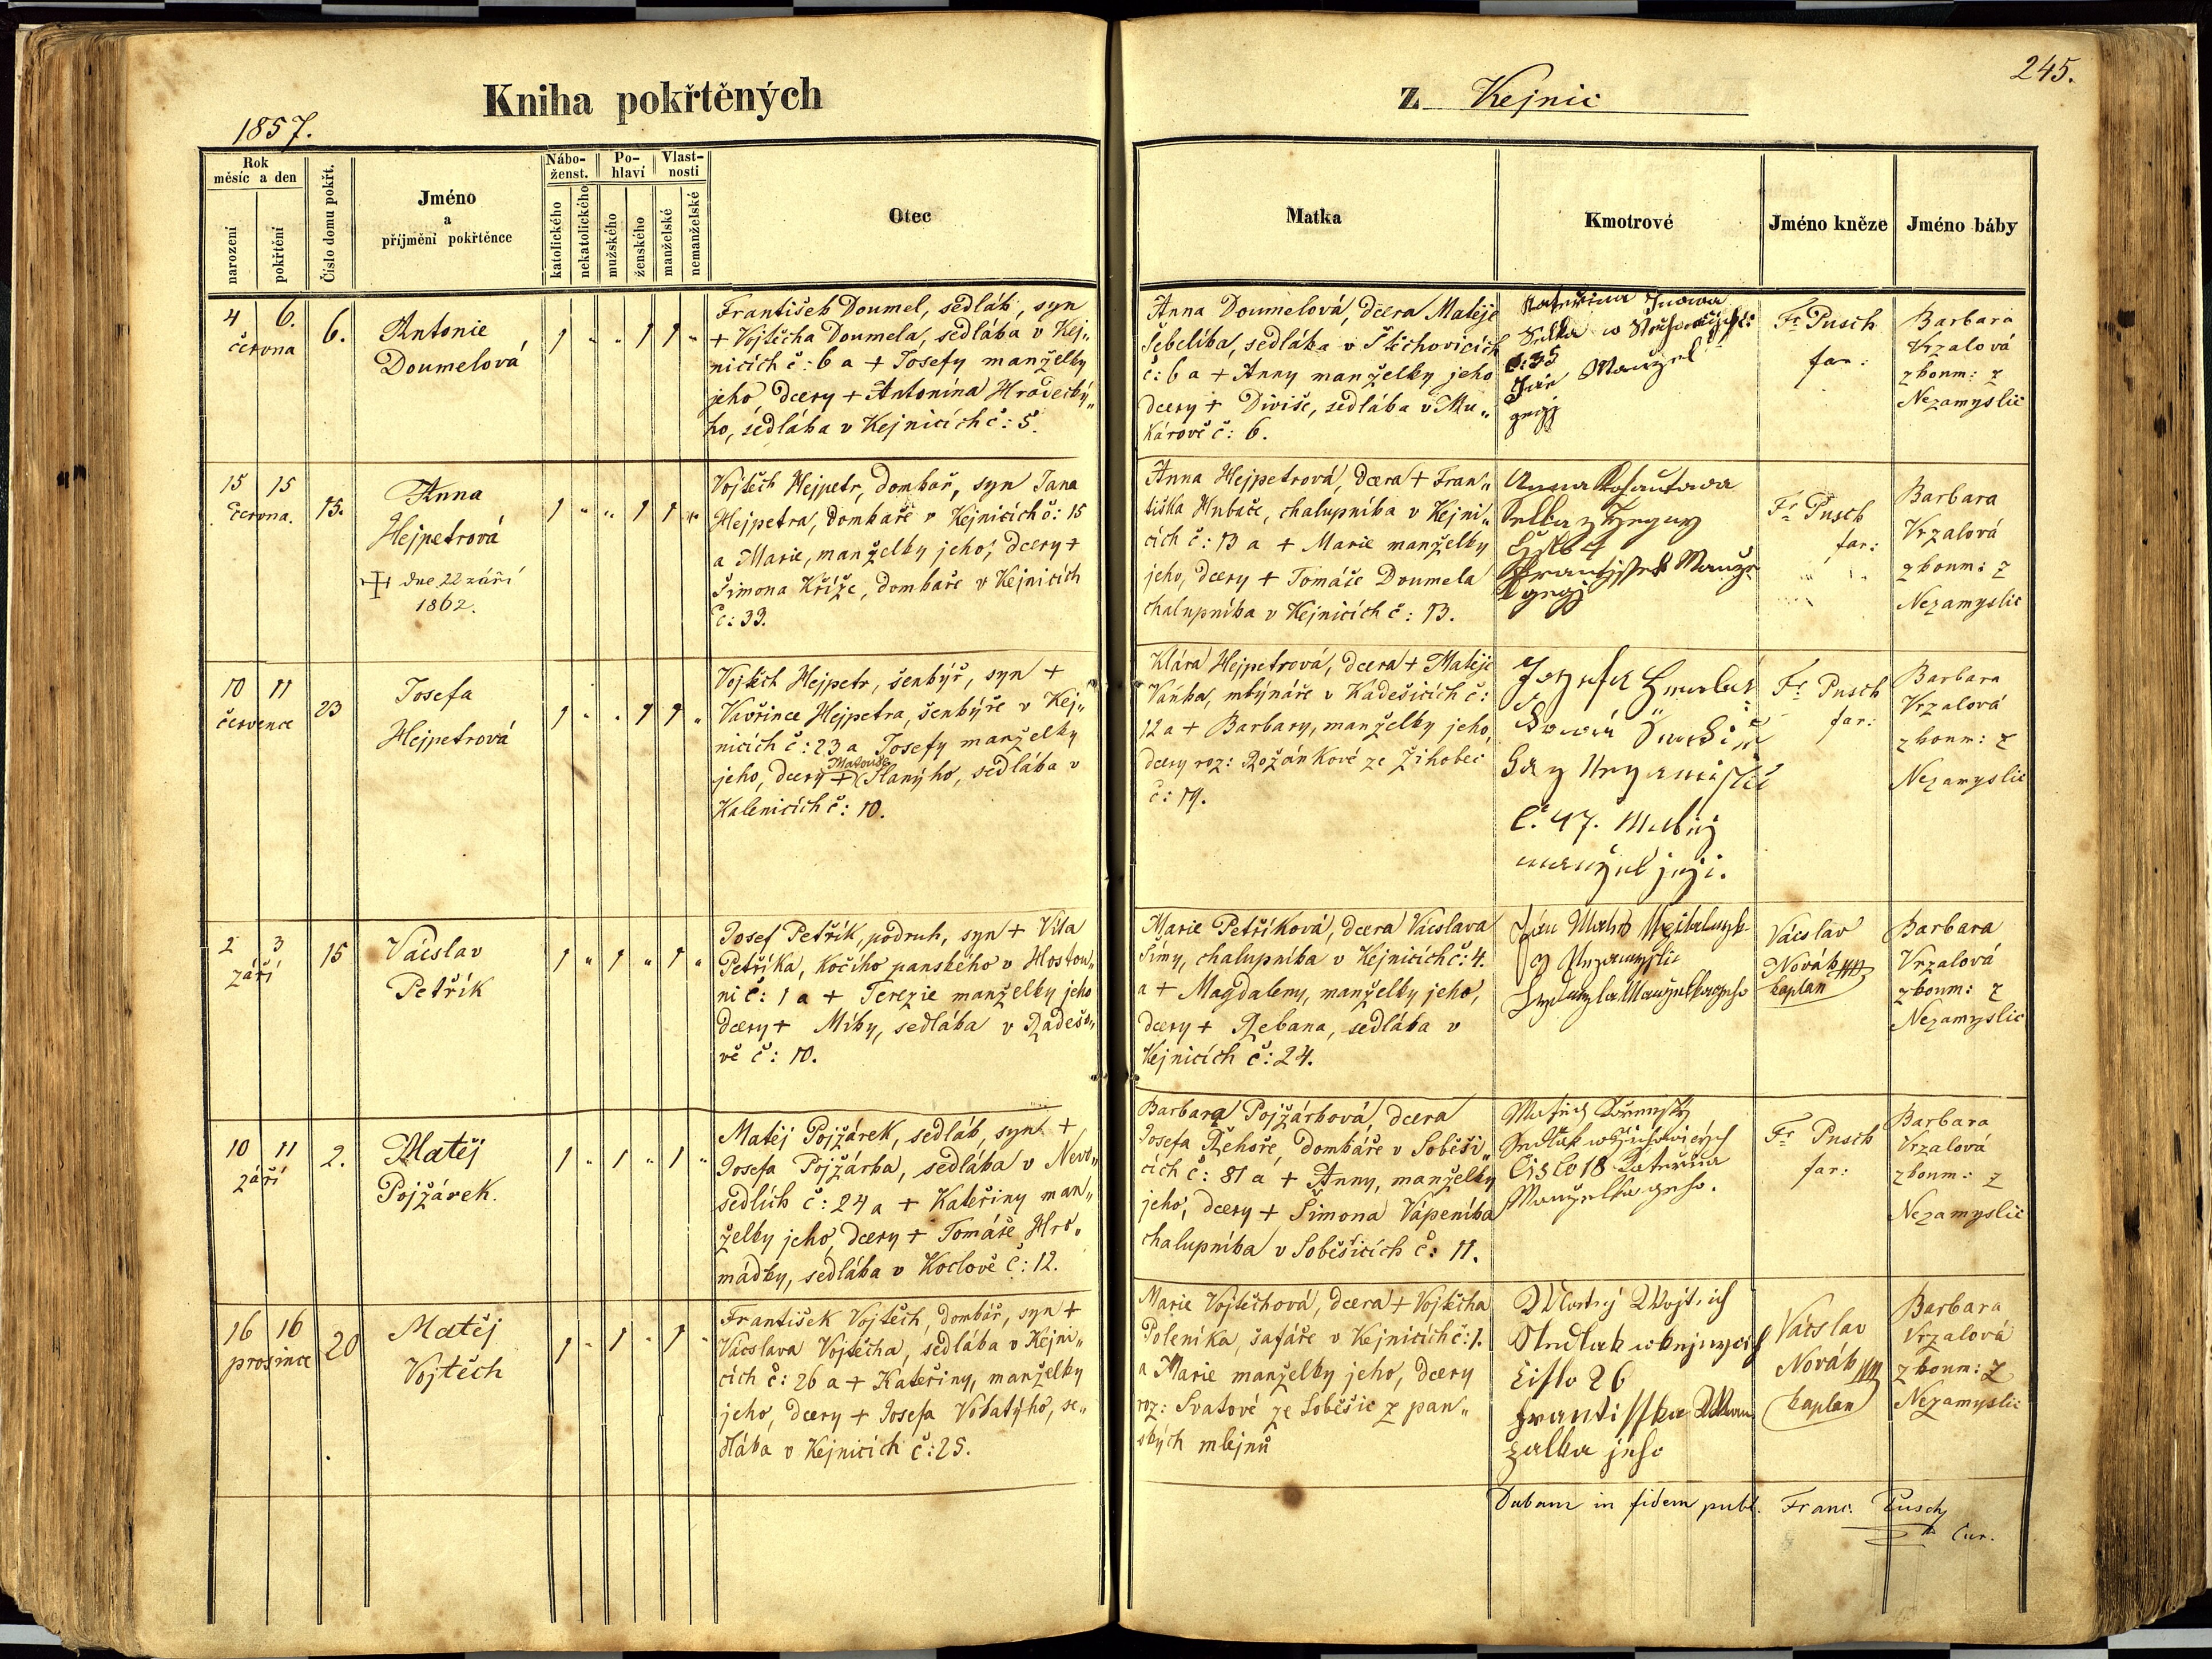 245.
Kniha pokřtěných
z Kejnic
1857.
Rok
měsíc a den
narození
pokřtění
Číslo domu pokřt.
Jméno
a
přijmění pokřtěnce
Nábo-
ženst.
katolického
nekatolického
Po-
hlaví
mužského
ženského
Vlast-
nosti
manželské
nemanželské
Otec
Matka
Kmotrové
Jméno kněze
Jméno báby
4 6.
června
6.
Antonie
Doumelová
1 " " 1 1 "
František Doumel, sedlák, syn
+ Vojtěcha Doumela, sedláka v Kej„
nicích č: 6 a + Josefy manželky
jeho dcery + Antonína Hradecký„
ho, sedláka v Kejnicích č: 5.
Anna Doumelová, dcera Matěje
Šebelíka, sedláka v Štěchovicích
č: 6 a + Anny manželky jeho
dcery + Diviše, sedláka v Mu„
kárově č: 6.
Kateřina
č: 35
Jan Manžel
gegj
Fr Pusch
far:
Barbara
Vrzalová
zkoum: z
Nezamyslic
15 15
června.
15.
Anna
Hejpetrová
dne 22 září
1862.
1 " " 1 1 "
Vojtěch Hejpetr, domkař, syn Jana
Hejpetra, domkaře v Kejnicích č: 15
a Marie, manželky jeho, dcery +
Šimona Kříže, domkaře v Kejnicích
č: 33.
Anna Hejpetrová, dcera + Fran„
tiška Hubače, chalupníka v Kejni„
cích č: 13 a + Marie manželky
jeho, dcery + Tomáše Doumela
chalupníka v Kejnicích č: 13.
Anna
Selka z
4
Frantissek Manže
gegj
Fr Pusch
far:
Barbara
Vrzalová
zkoum: z
Nezamyslic
10 11
července
23
Josefa
Hejpetrová
1 " " 1 1 "
Vojtěch Hejpetr, šenkýř, syn +
Vavřince Hejpetra, šenkýře v Kej„
nicích č: 23 a Josefy manželky
Matouše
jeho, dcery + Slanýho, sedláka v
Kalenicích č: 10.
Klára Hejpetrová, dcera + Matěje
Vaňka, mlýnáře v Kadešicích č:
12 a + Barbary, manželky jeho,
dcery roz: Rožánkové ze Žihobec
č: 19.
Jozefa
č. 47. Matěj
manžel jeji.
Fr Pusch
far:
Barbara
Vrzalová
zkoum: z
Nezamyslic
2 3
září
15
Václav
Petřík
1 " 1 " 1 "
Josef Petřík, podruh, syn + Víta
Petříka, kočího panského v Hostou„
ni č: 1 a + Terezie manželky jeho
dcery + Míky, sedláka v Radešo„
vě č: 10.
Marie Petříková, dcera Vácslava
Šímy, chalupníka v Kejnicích č: 4.
a + Magdaleny, manželky jeho,
dcery + Řebana, sedláka v
Kejnicích č: 24.
Jan
z Nezamyslic
Manželka geho
Vácslav
Novák
kaplan
Barbara
Vrzalová
zkoum: z
Nezamyslic
10 11
září
2.
Matěj
Pojžárek.
1 " 1 " 1 "
Matěj Pojžárek, sedlák, syn +
Josefa Pojžárka, sedláka v Nevo„
sedlích č: 24 a + Kateřiny man„
želky jeho, dcery + Tomáše Hro„
mádky, sedláka v Koclově č: 12.
Barbara Pojžárková, dcera
Josefa Řehoře, domkáře v Soběši„
cích č: 81 a + Anny, manželky
jeho, dcery + Šimona Vápeníka
chalupníka v Soběšicích č: 11.
Matěj
Sedlák w
Čislo 18 Kateřina
Manželka geho.
Fr Pusch
far:
Barbara
Vrzalová
zkoum: z
Nezamyslic
16 16
prosince
20
Matěj
Vojtěch
1 " 1 " 1 "
František Vojtěch, domkář, syn +
Vácslava Vojtěcha, sedláka v Kejni„
cích č: 26 a + Kateřiny, manželky
jeho, dcery + Josefa Vobatýho, se„
dláka v Kejnicích č: 25.
Marie Vojtěchová, dcera + Vojtěcha
Poleníka, šafáře v Kejnicích č: 1.
a Marie manželky jeho, dcery
roz: Svatové ze Soběšic z pan„
ských mlejnů
Matěj Wojtěch
Sedlak w
čislo 26
Frantisska Man
zelka jeho
Vácslav
Novák
kaplan
Barbara
Vrzalová
zkoum: z
Nezamyslic
Dabam in fidem publ. Franc. Pusch
Cur.